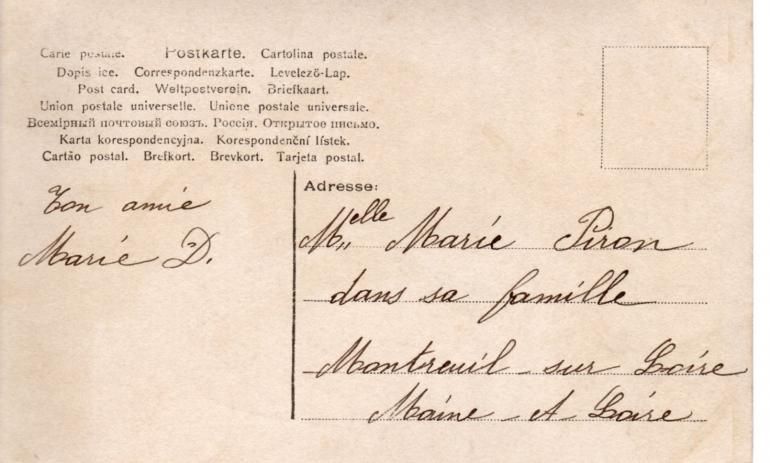 Carte postale. Postkarte. Cartolina postale.
Dopisnice. Correspondenzkarte. Levelező-Lap.
Post card. Weltpostverein. Briefkaart.
Union postale universelle. Unione postale universale.
Всемірный почтовый союзъ. Россія. Открытое письмо.
Karta korespondencyjna. Korespondenční lístek.
Cartão postal. Brefkort. Brevkort. Tarjeta postal.
Ton amie
Marie D.
Adresse:
Melle Marie Piron
dans sa famille
Montreuil sur Loire
Maine et Loire